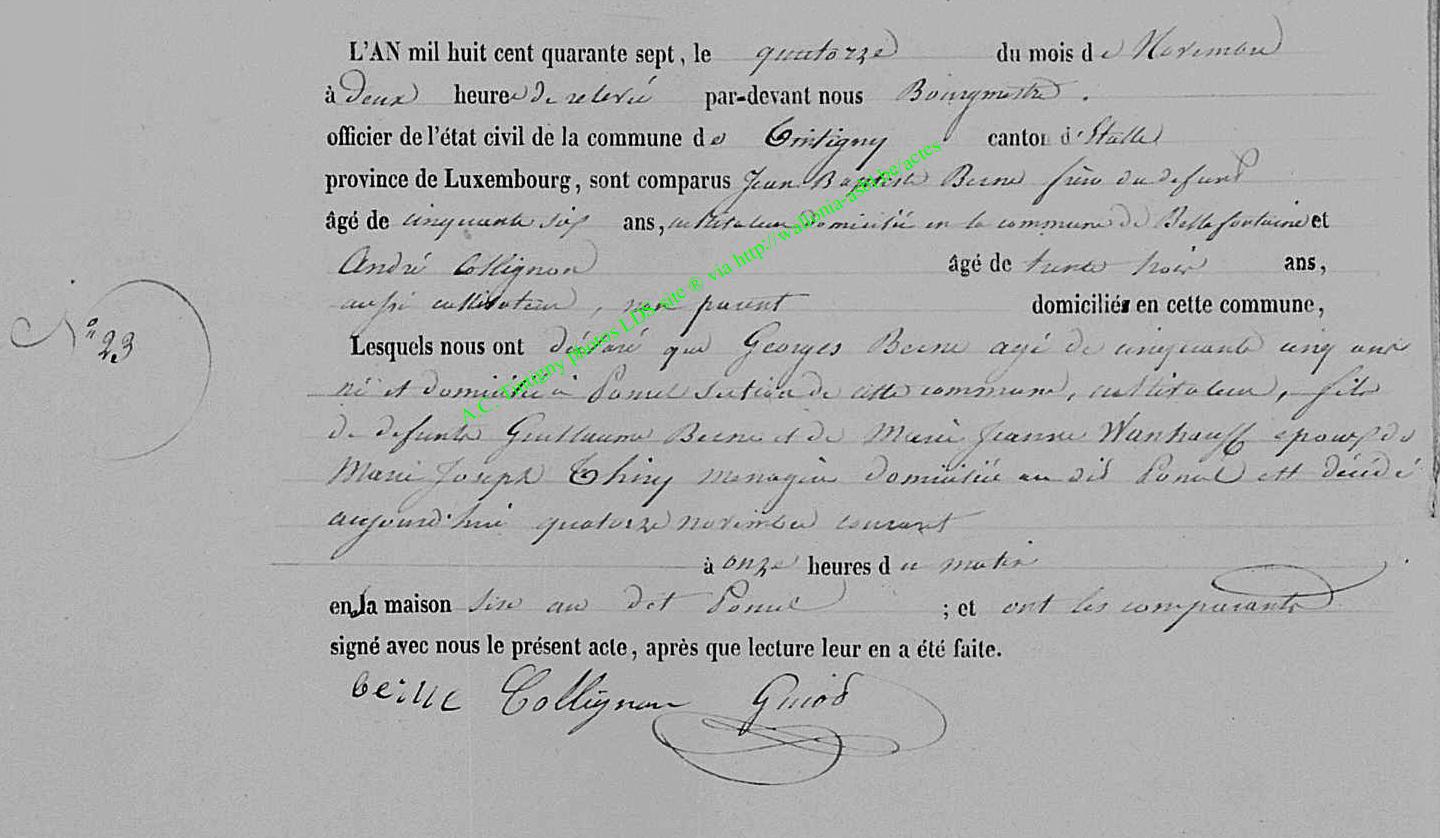 L'AN mil huit cent quarante sept, le quatorze du mois de Novembre
à deux heures de relevée par-devant nous Bourgmestre.
officier de l'état civil de la commune de Tintigny canton d'Étalle
province de Luxembourg, sont comparus Jean Baptiste frère du defunt
âgé de cinquante six ans, cultivateur domicilié en la commune de Bellefontaine et
André Collignon âgé de trente trois ans,
aussi cultivateur, non parent domiciliés en cette commune,
N° 23
Lesquels nous ont déclaré que Georges agé de cinquante cinq ans
né et domicilié à section de cette commune, cultivateur, fils
de defunts Guillaume et de Marie Jeanne époux de
Marie Joseph Thiry menagère domiciliée au dit est décédé
aujourd'hui quatorze novembre courant
à onze heures du matin
en la maison sise au dit ; et ont les comparants
signé avec nous le présent acte, après que lecture leur en a été faite.
Collignon
A.C. Tintigny photos LDS site ® via http://wallonia-asbl.be/actes